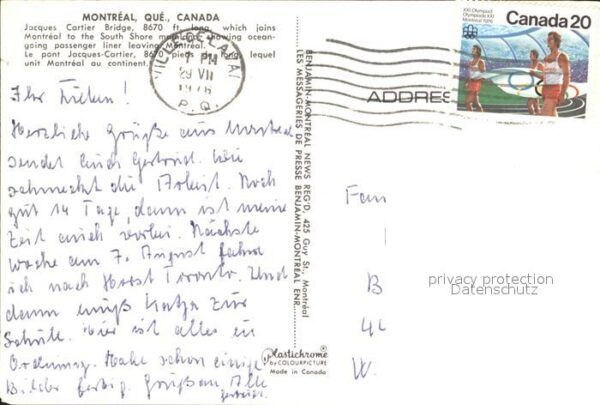 MONTRÉAL, QUÉ., CANADA
Jacques Cartier Bridge, 8670 ft. long, which joins
Montréal to the South Shore mainland showing ocean-
going passenger liner leaving Montréal.
Le pont Jacques-Cartier, 8670 pieds de long lequel
unit Montréal au continent.
PM
29 VII
1976
P. Q.
XXI Olympiad
Olympiade XXI
Montréal 1976
Canada 20
ADDRES
Ihr Lieben!
Herzliche Grüße aus Montreal
sendet Euch Gertrud. Wie
schmeckt die Arbeit. Noch
gut 14 Tage, dann ist meine
Zeit auch vorbei. Nächste
Woche am 7. August fahre
ich nach Horst Toronto. Und
dann muß Katja zur
Schule. Hier ist alles in
Ordnung. Habe schon einige
Bilder fertig. Grüße an Alle
BENJAMIN-MONTREAL NEWS REG'D. 425 Guy St., Montréal
LES MESSAGERIES DE PRESSE BENJAMIN-MONTREAL ENR.
Fam
B
42
W.
privacy protection
Datenschutz
Plastichrome®
by COLOURPICTURE
Made in Canada